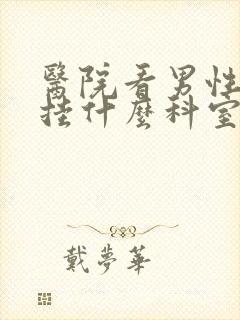 醫院看男性
挂什麼科室
戴夢華